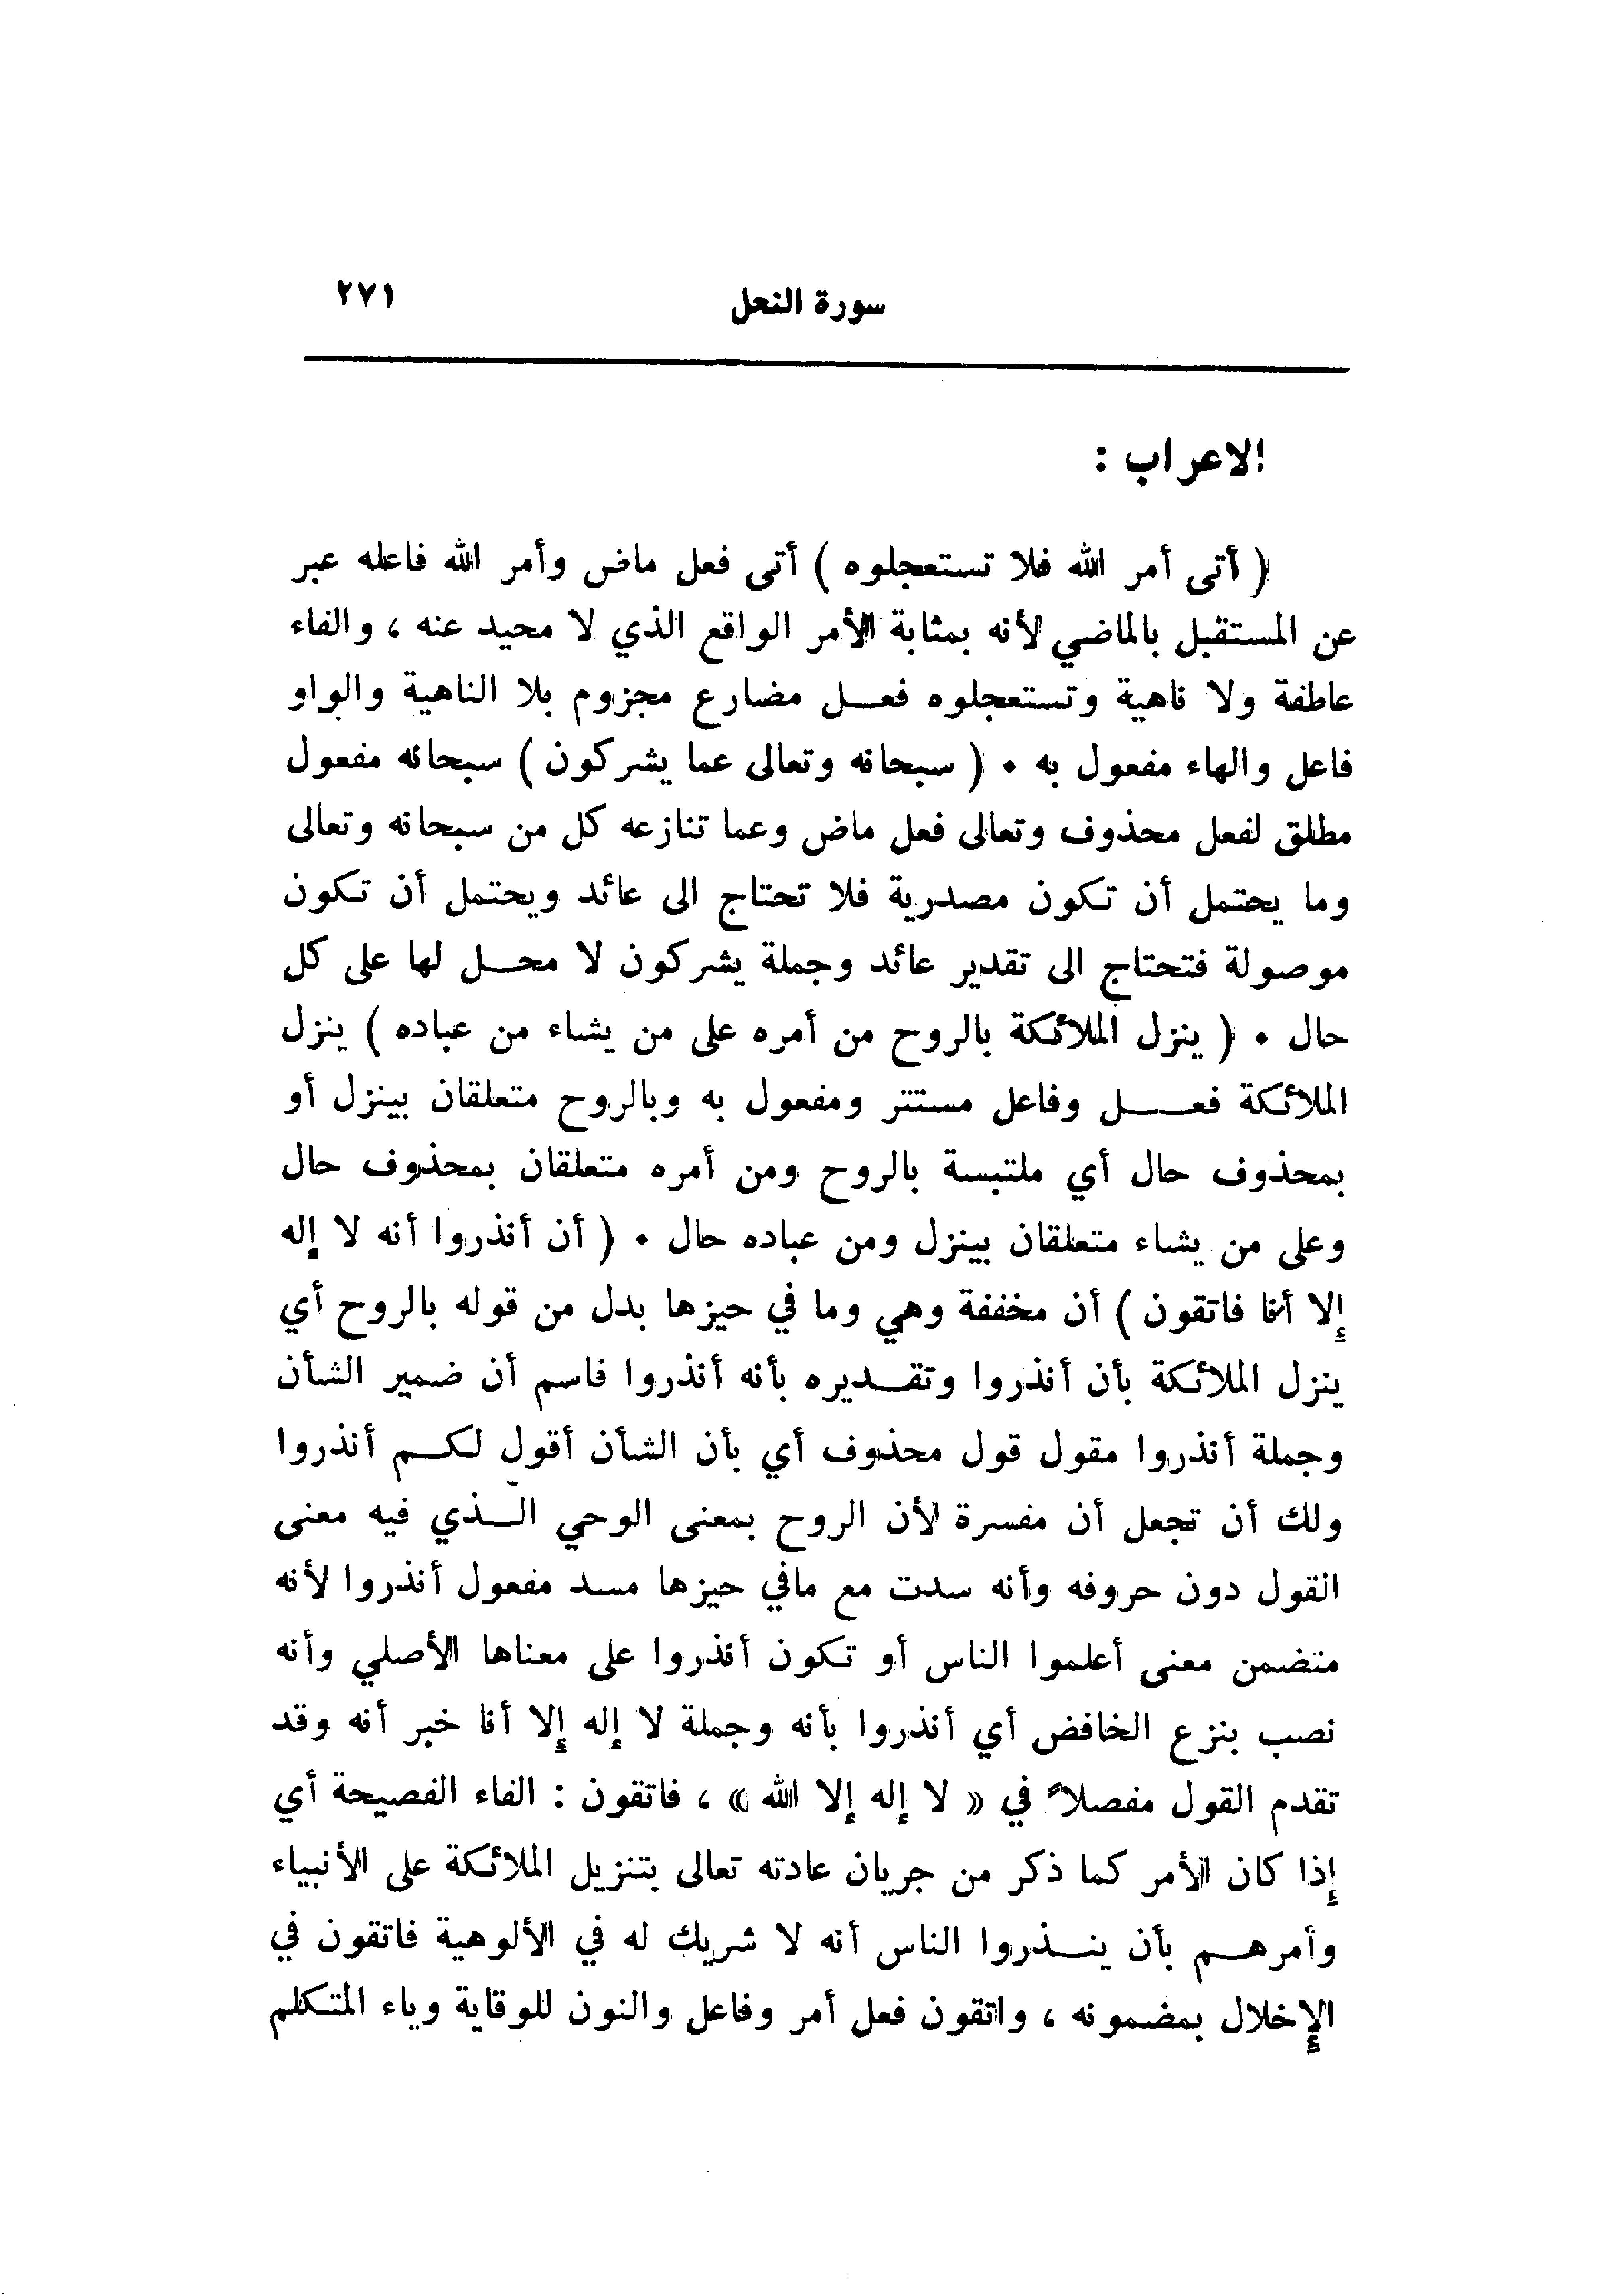 سورة النحل ٢٧١
الاعراب :
( أتى أمر الله فلا تستعجلوه ) أتى فعل ماض وأمر الله فاعله عبر
عن المستقبل بالماضي لأنه بمثابة الأمر الواقع الذي لا محيد عنه ، والفاء
عاطفة ولا ناهية وتستعجلوه فعل مضارع مجزوم بلا الناهية والواو
فاعل والهاء مفعول به . ( سبحانه وتعالى عما يشركون ) سبحانه مفعول
مطلق لفعل محذوف وتعالى فعل ماض وعما تنازعه كل من سبحانه وتعالى
وما يحتمل أن تكون مصدرية فلا تحتاج الى عائد ويحتمل أن تكون
موصولة فتحتاج الى تقدير عائد وجملة يشركون لا محل لها على كل
حال . ( ينزل الملائكة بالروح من أمره على من يشاء من عباده ) ينزل
الملائكة فعل وفاعل مستتر ومفعول به وبالروح متعلقان بينزل أو
بمحذوف حال أي ملتبسة بالروح ومن أمره متعلقان بمحذوف حال
وعلى من يشاء متعلقان بينزل ومن عباده حال . ( أن أنذروا أنه لا إله
إلا أنا فاتقون ) أن مخففة وهي وما في حيزها بدل من قوله بالروح أي
ينزل الملائكة بأن أنذروا وتقديره بأنه أنذروا فاسم أن ضمير الشأن
وجملة أنذروا مقول قول محذوف أي بأن الشأن أقول لكم أنذروا
ولك أن تجعل أن مفسرة لأن الروح بمعنى الوحي الّذي فيه معنى
القول دون حروفه وأنه سدت مع مافي حيزها مسد مفعول أنذروا لأنه
متضمن معنى أعلموا الناس أو تكون أنذروا على معناها الأصلي وأنه
نصب بنزع الخافض أي أنذروا بأنه وجملة لا إله إلا أنا خبر أنه وقد
تقدم القول مفصلاً في « لا إله إلا الله » ، فاتقون : الفاء الفصيحة أي
إذا كان الأمر كما ذكر من جريان عادته تعالى بتنزيل الملائكة على الأنبياء
وأمرهم بأن ينذروا الناس أنه لا شريك له في الألوهية فاتقون في
الإخلال بمضمونه ، واتقون فعل أمر وفاعل والنون للوقاية وياء المتكلم